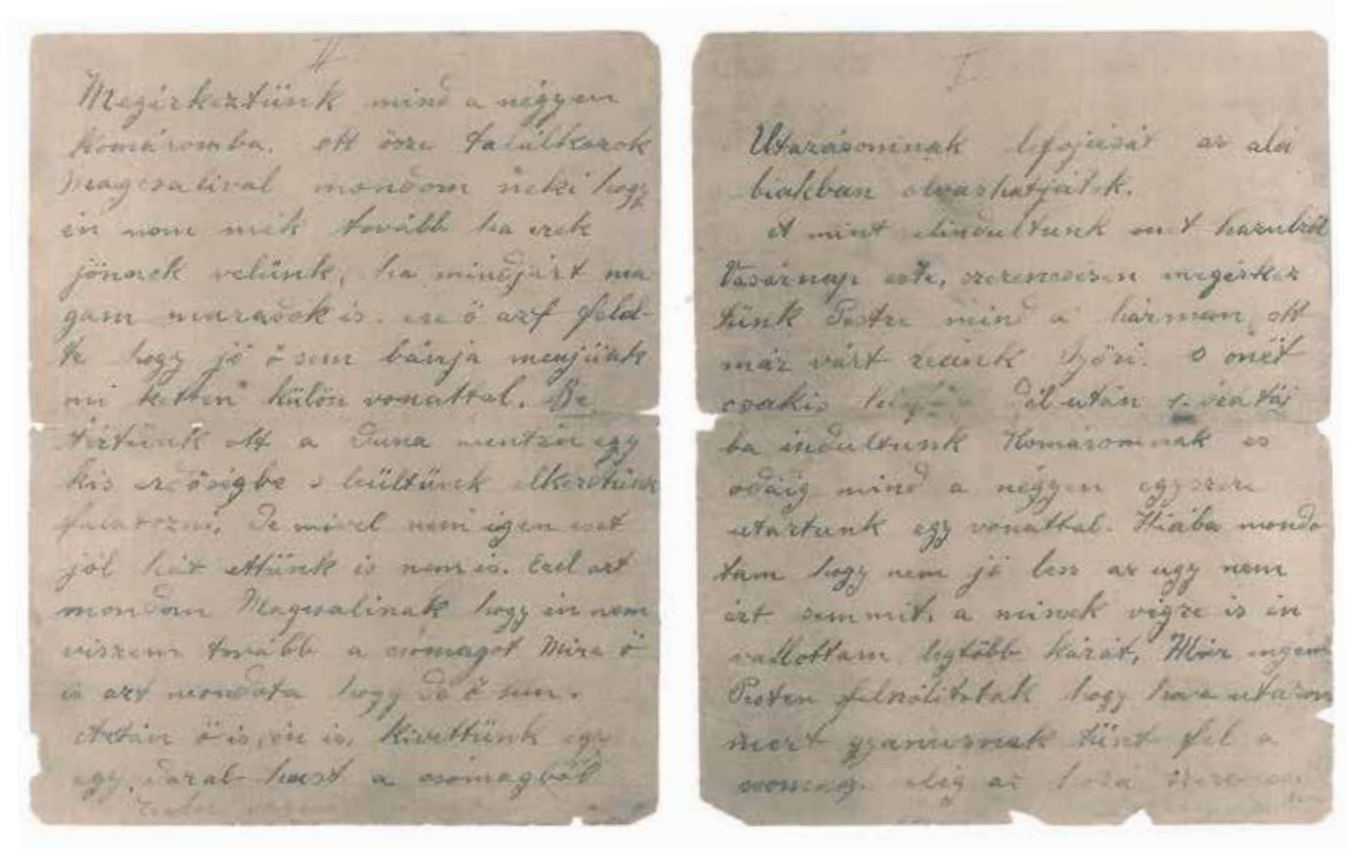 II
Megérkeztünk mind a négyen
komáromba. ott össze találkozok
Magcsalival mondom neki hogy
én nem mék tovább ha ezek
jönnek velünk, ha mindjárt ma
gam maradok is. ere ő azt felel-
te hogy jó ő sem bánja menjünk
mi ketten külön vonattal. Be
tértünk ott a Duna mentén egy
kis erdőségbe s leültünk elkezdtünk
falatozni, De mivel nem igen eset
jól hát ettünk is nem is. Ezel azt
mondom Magcsalinak hogy én nem
viszem tovább a csómagot Mire ő
is azt mondota hogy de ő sem.
Aztán ő is, én is, kivettünk egy
egy darab hust a csómagból
I
Utazásomnak lefojását az alá
biakban olvashatjátok.
A mint elindultunk onét hazulról
Vasárnap este, szerencsésen megérkez
tünk Pestre mind a hárman ott
már várt reánk Győri. s onét
csakis dél után óra táj
ba indultunk Komáromnak es
odáig mind a négyen egyszere
utaztunk egy vonattal. Hiába mondo
tam hogy nem jó lesz az ugy nem
ért semmit, a minek végre is én
vallottam legtöbb kárát, Már engem
Pesten felszólitotak hogy hova utazom
mert gyanusnak tünt fel a
csomag. elég az hozá